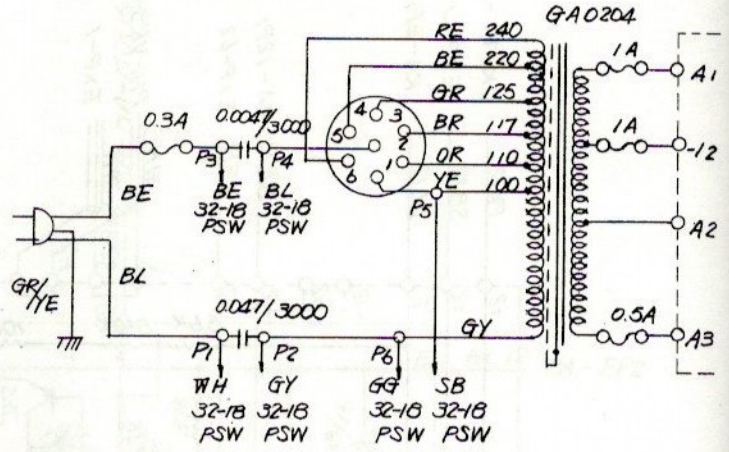 GA0204
RE 240
BE 220
GR 125
BR 117
OR 110
YE 100
1A
A1
1A
-12
A2
0.5A
A3
0.3A
0.0047/3000
P3
P4
4
3
5
2
6
1
P5
BE
BE
32-18
PSW
BL
32-18
PSW
BL
GR/
YE
0.047/3000
P1
P2
P6
GY
WH
32-18
PSW
GY
32-18
PSW
GG
32-18
PSW
SB
32-18
PSW